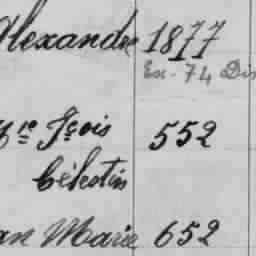 Alexandre 1877
Ex-74 Dis
Mre Fçois 552
Célestin
an Marie 652